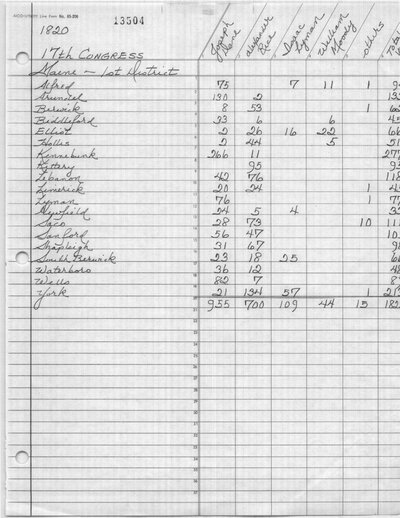 13504
1820
17th Congress
Maine — 1st District
Joseph Dane
Alexander Rice
Isaac Lyman
William Moody
others
Alfred 75 7 11 1
Arundel 131 2
Berwick 8 53 1
Biddleford 33 6 6
Elliot 2 26 16 22
Hollis 2 44 5
Kennebunk 266 11 277
Kittery 95
Lebanon 42 76 118
Limerick 20 24 1
Lyman 76 1
Newfield 24 5 4
Saco 28 73 10 111
Sanford 56 47
Shapleigh 31 67
South Berwick 23 18 25
Waterboro 36 12
Wells 82 7
York 21 134 57 1 213
955 700 109 44 15